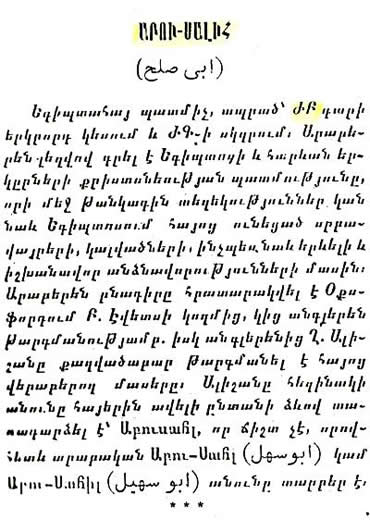 ԱԲՈՒ-ՍԱԼԻՀ
(ابى صلح)
Եգիպտահայ պատմիչ, ապրած՝ ԺԲ դարի
երկրորդ կեսում և ԺԳ-ի սկզբում։ Արաբե-
րեն լեզվով գրել է Եգիպտոսի և հարևան եր-
կըրների քրիստոնեության պատմությունը,
որի մեջ թանկագին տեղեկություններ կան
նաև Եգիպտոսում հայոց ունեցած սրբա-
վայրերի, կալվածների, ինչպես նաև երևելի և
իշխանավոր անձնավորությունների մասին։
Արաբերեն բնագիրը հրատարակվել է Օքս-
ֆորդում Բ. Էվետսի կողմից, կից անգլերեն
թարգմանությամբ. իսկ անգլերենից Ղ. Ալի-
շանը քաղվածաբար թարգմանել է հայոց
վերաբերող մասերը։ Ալիշանը հեղինակի
անունը հայերին ավելի ընտանի ձևով տա-
ռադարձել է՝ Աբուսահլ, որ ճիշտ չէ, որով-
հետև արաբական Աբու-Սահլ (ابو سهل) կամ
Աբու-Սոհիլ (ابو سهيل) անունը տարբեր է։
* * *